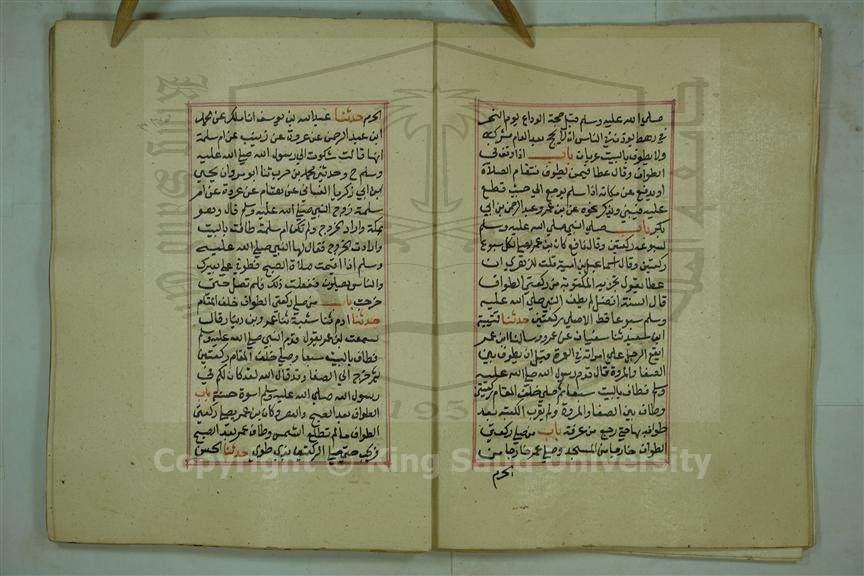 صلى الله عليه وسلم قبل حجة الوداع يوم النحر
في رهط يوذن في الناس الا لا يحج بعد العام مشرك
ولا يطوف بالبيت عريان باب اذا وقف في
الطواف وقال عطا فيمن يطوف فتقام الصلاة
او يدفع عن مكانه اذا سلم يرجع الى حيث قطع
عليه فيبني ويذكر نحوه عن بن عمر وعبد الرحمن بن ابي
بكر باب صلى النبي صلى الله عليه وسلم
لسبوعه ركعتين وقال نافع كان بن عمر يصلي لكل سبوع
ركعتين وقال اسماعيل بن امية قلت للزهري ان
عطا يقول تجزيه المكتوبة من ركعتي الطواف
قال السنة افضل لم يطف النبي صلى الله عليه
وسلم سبوعا قط الا صلى ركعتين حدثنا قتيبة
ابن سعيد ثنا سفيان عن عمرو سالنا ابن عمر
ايقع الرجل على امراته في العمرة قبل ان يطوف بين
الصفا والمروة قال قدم رسول الله صلى الله عليه
وسلم فطاف بالبيت سبعا ثم صلى خلف المقام ركعتين
وطاف بين الصفا والمروة ولم يقرب الكعبة بعد
طوافه بها حتى رجع من عرفة باب من صلى ركعتي
الطواف خارجا من المسجد وصلى عمر خارجا من
الحرم
الحرم حدثنا عبد الله بن يوسف انا ملك عن محمد
ابن عبد الرحمن عن عروة عن زينب عن ام سلمة
انها قالت شكوت الى رسول الله صلى الله عليه
وسلم ح وحدثني محمد بن حرب ثنا ابو مروان يحيى
ابن ابي زكريا الغساني عن هشام عن عروة عن ام
سلمة زوج النبي صلى الله عليه وسلم قال وهو
بمكة واراد الخروج ولم تكن ام سلمة طافت بالبيت
وارادت الخروج فقال لها النبي صلى الله عليه
وسلم اذا اقيمت صلاة الصبح فطوفي على بعيرك
والناس يصلون ففعلت ذلك فلم تصل حتى
خرجت باب من صلى ركعتي الطواف خلف المقام
حدثنا ادم ثنا شعبة ثنا عمرو بن دينار قال
سمعت بن عمر يقول قدم النبي صلى الله عليه وسلم
فطاف بالبيت سبعا وصلى خلف المقام ركعتين
ثم خرج الى الصفا وقد قال الله لقد كان لكم في
رسول الله صلى الله عليه وسلم اسوة حسنة باب
الطواف بعد الصبح والعصر وكان بن عمر يصلي ركعتي
الطواف ما لم تطلع الشمس وطاف عمر بعد الصبح
فركب حتى صلى الركعتين بذي طوى حدثنا الحسن
Copyright © King Saud University
195